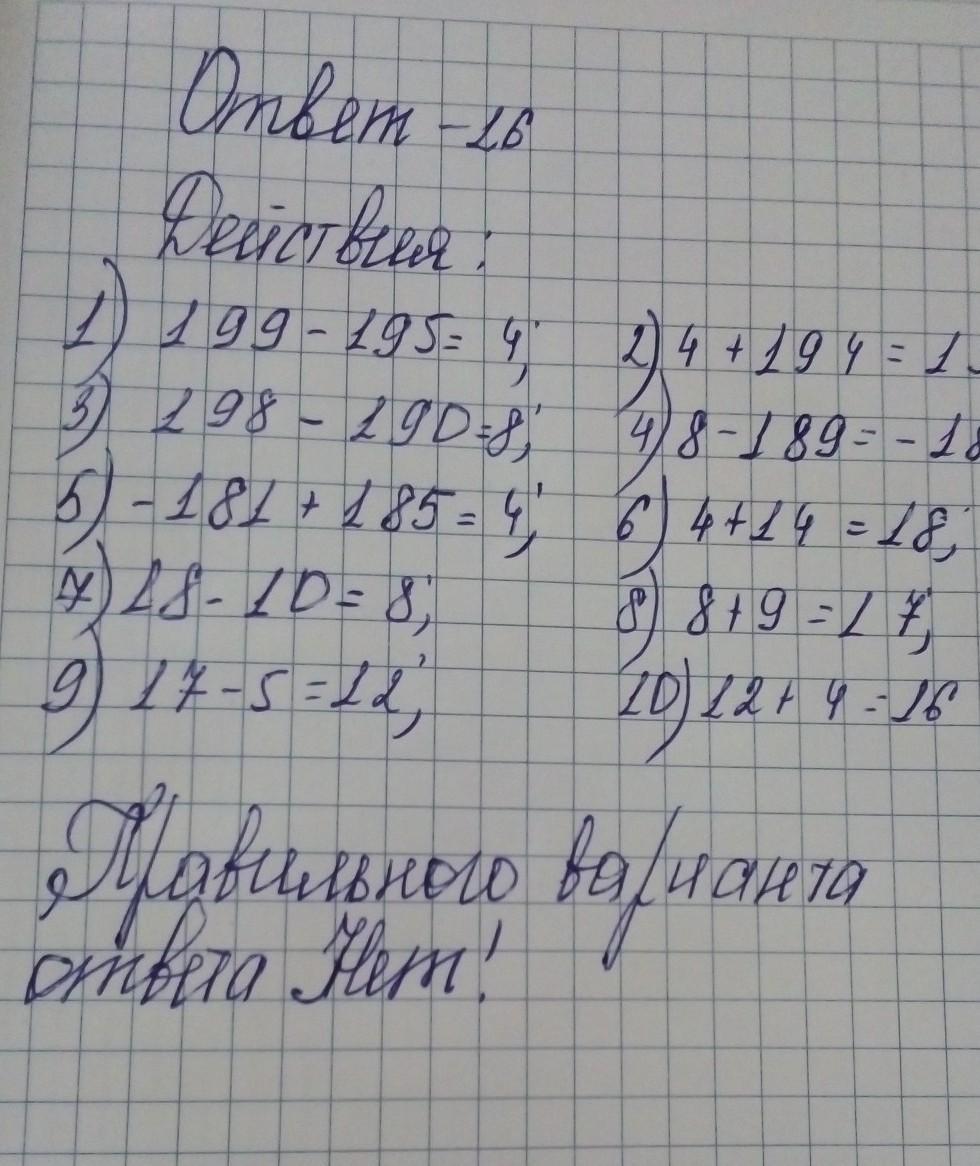 Ответ - 16
Действия:
1) 199 - 195 = 4; 2) 4 + 194 = 1
3) 198 - 190 = 8; 4) 8 - 189 = - 18
5) - 181 + 185 = 4; 6) 4 + 14 = 18;
7) 18 - 10 = 8; 8) 8 + 9 = 17;
9) 17 - 5 = 12; 10) 12 + 4 = 16
Правильного варианта
ответа Нет!